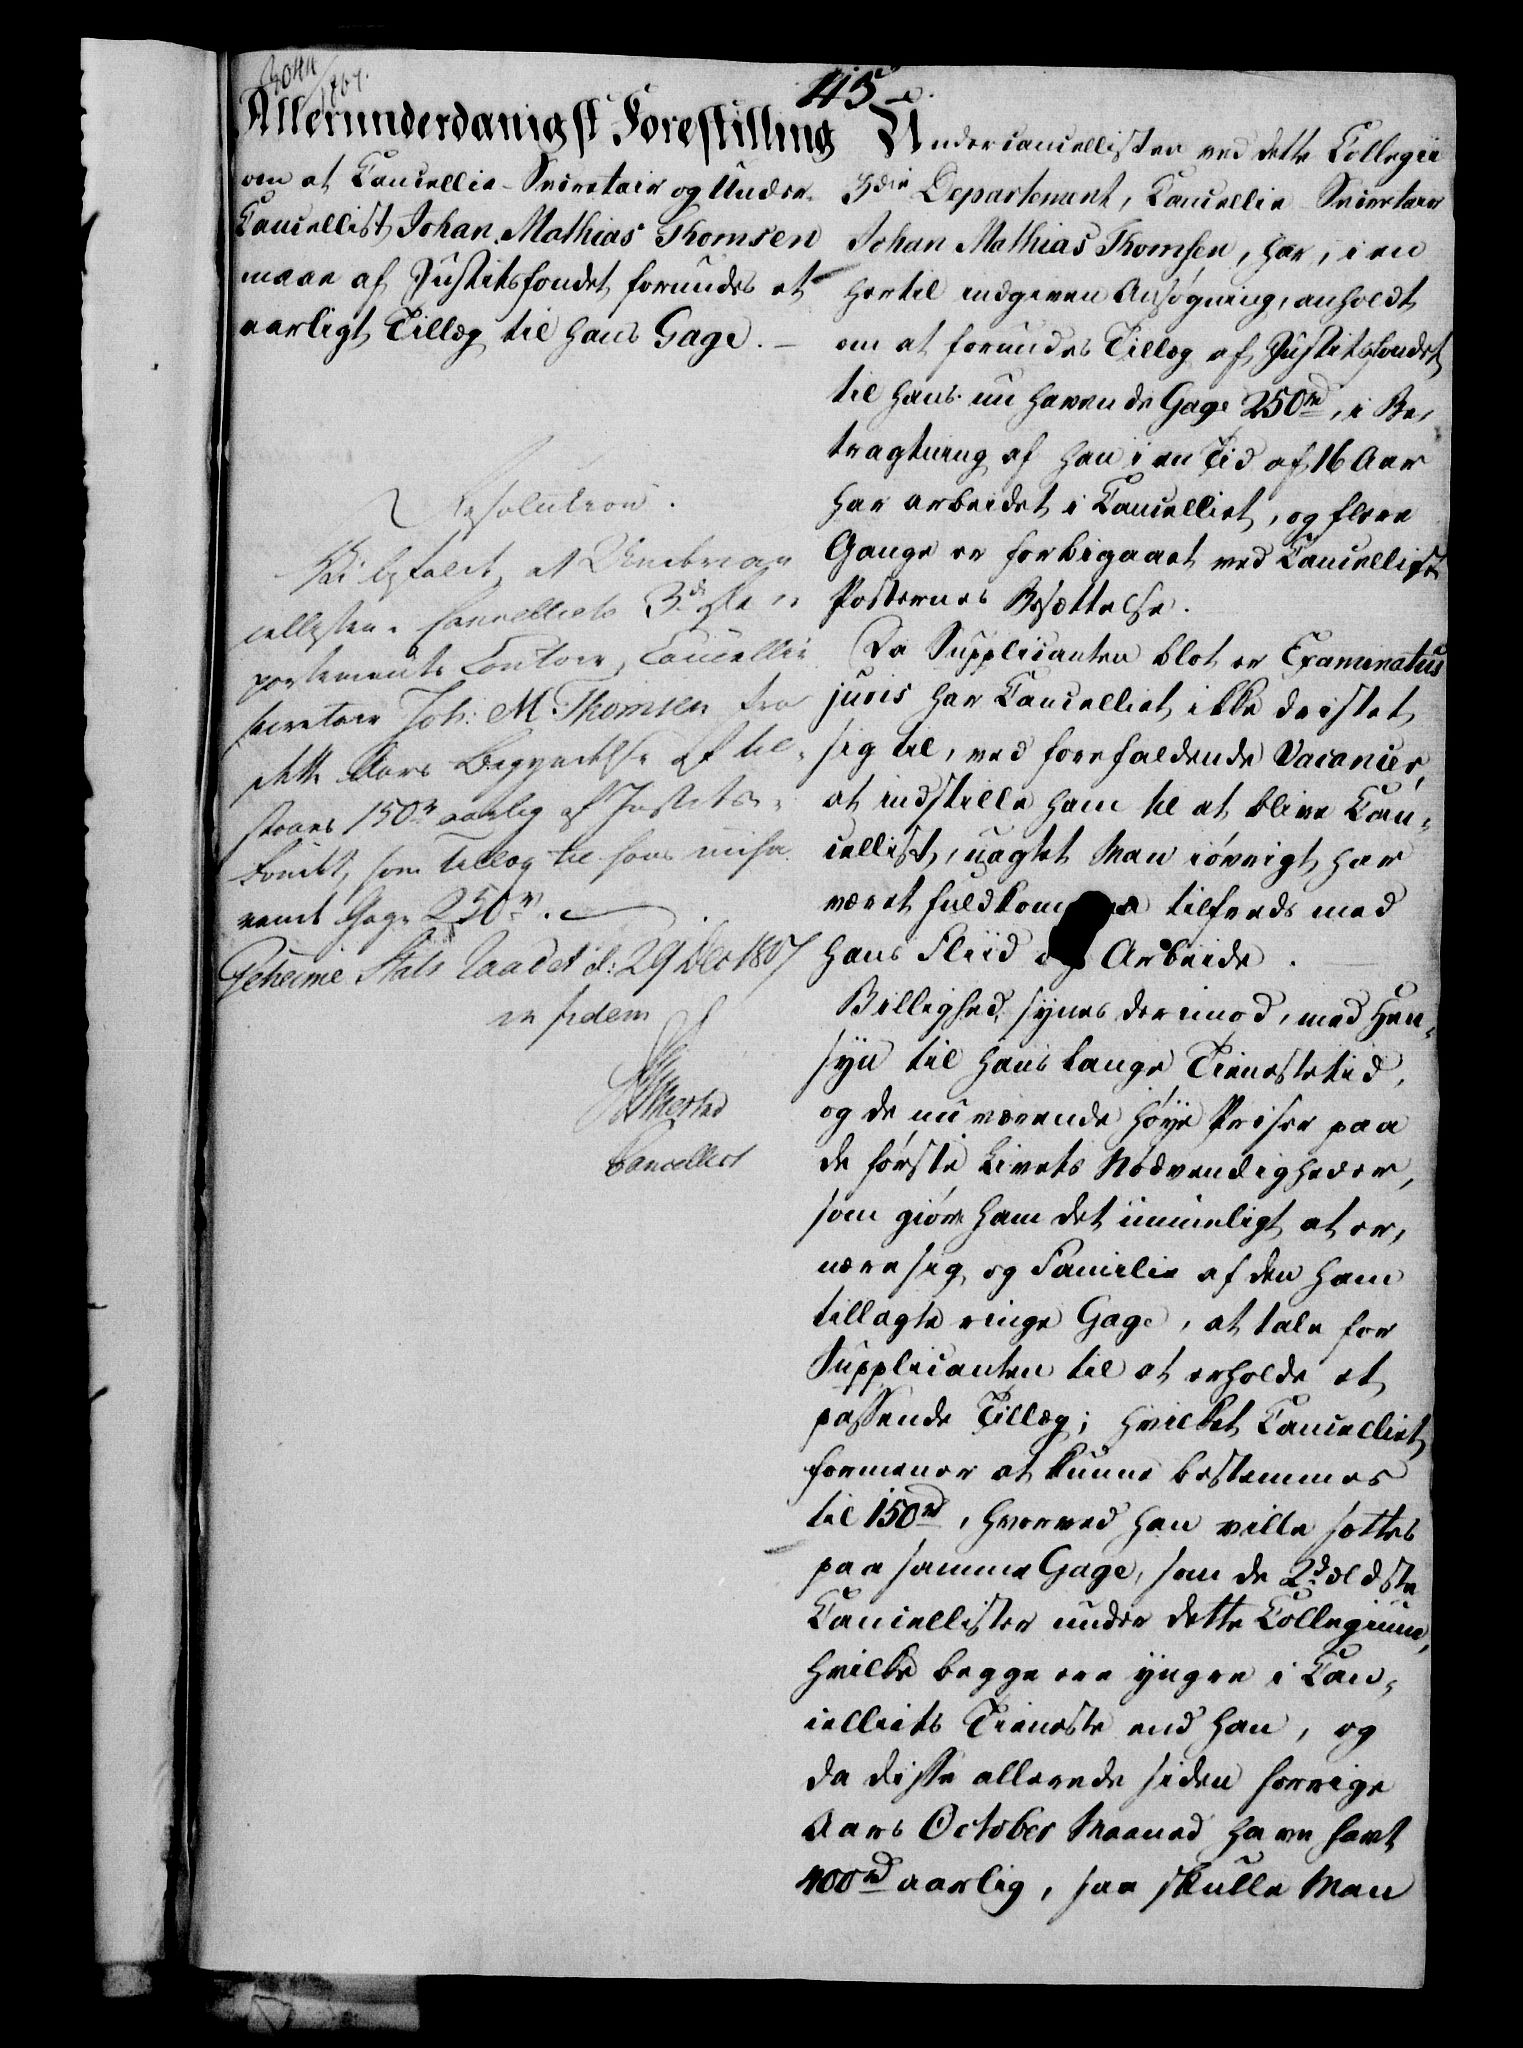 3044
1807.
115
Allerunderdanigst Forestilling
om at Cancellie-Secretair og Under-
Cancellist Johan Mathias Thomsen
maae af Justitsfondet forundes et
aarligt Tillæg til hans Gage. –
Resolution.
Vi befale, at Undercan
cellisten i Cancelliets 3de De
partements Contoir, Cancellie
secretair Joh: M Thomsen fra
dette Aars Begyndelse af til-
staaes 150 rd aarlig af Justits-
fondet, som Tillæg til hans nuha
vende Gage 250 rd.
Geheime Stats Raadet d: 29 Dec 1807
in fidem
Cancelliet
Undercancellisten ved dette Collegii
3die Departement, Cancellie Secretair
Johan Mathias Thomsen, har, i en
hertil indgiven Ansøgning, anholdt
om at forundes Tillæg af Justitsfondet
til hans nu havende Gage 250 rd, i Be-
tragtning af han i en Tid af 16 Aar
har arbeidet i Cancelliet, og flere
Gange er forbigaaet ved Cancellist
Posternes Besættelse.
Da Supplicanten blot er Examinatus
juris har Cancelliet ikke dristet
sig til, ved forefaldende Vacancer,
at indstille ham til at blive Can-
cellist, uagtet Man iøvrigt har
været fuldkommen tilfreds med
hans Fliid og Arbeide.
Billighed synes derimod, med Hen-
syn til hans lange Tienestetid,
og de nu værende høye Priser paa
de første Livets Nødvendigheder,
som giør ham det umueligt at er-
nære sig og Familie af den ham
tillagte ringe Gage, at tale for
Supplicanten til at erholde et
passende Tillæg; hvilket Cancelliet
formener at kunne bestemmes
til 150 rd, hvorved han ville sættes
paa samme Gage, som de 2de ældste
Cancellister under dette Collegium,
hvilke begge ere yngre i Can-
celliets Tieneste end han, og
da disse allerede siden forrige
Aars October Maaned have havt
400 rd aarlig, saa skulle Man